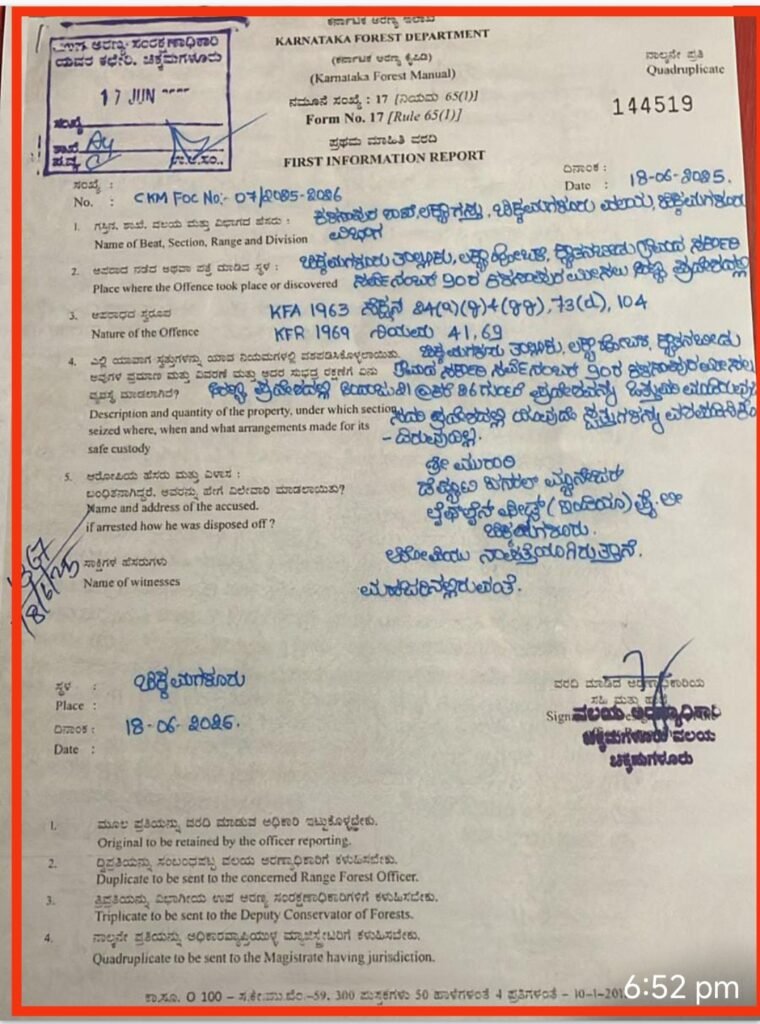 ಕರ್ನಾಟಕ ಅರಣ್ಯ ಇಲಾಖೆ
KARNATAKA FOREST DEPARTMENT
(ಕರ್ನಾಟಕ ಅರಣ್ಯ ಕೈಪಿಡಿ)
(Karnataka Forest Manual)
ನಮೂನೆ ಸಂಖ್ಯೆ : 17 [ನಿಯಮ 65(1)]
Form No. 17 [Rule 65(1)]
ಪ್ರಥಮ ಮಾಹಿತಿ ವರದಿ
FIRST INFORMATION REPORT
ನಾಲ್ಕನೇ ಪ್ರತಿ
Quadruplicate
144519
ಅರಣ್ಯ ಸಂರಕ್ಷಣಾಧಿಕಾರಿ
ಯವರ ಕಛೇರಿ, ಚಿಕ್ಕಮಗಳೂರು
17 JUN
ಸಂಖ್ಯೆ
ಶಾಖೆ
ದಿನಾಂಕ :
Date : 18-06-2025.
ಸಂಖ್ಯೆ :
No. : CKM FOC No:- 07/2025-2026
1. ಗಸ್ತಿನ, ಶಾಖೆ, ವಲಯ ಮತ್ತು ವಿಭಾಗದ ಹೆಸರು : ಚಿಕ್ಕಮಗಳೂರು ವಲಯ, ಚಿಕ್ಕಮಗಳೂರು
Name of Beat, Section, Range and Division ವಿಭಾಗ
2. ಅಪರಾಧ ನಡೆದ ಅಥವಾ ಪತ್ತೆ ಮಾಡಿದ ಸ್ಥಳ : ಚಿಕ್ಕಮಗಳೂರು ತಾಲ್ಲೂಕು, ಲಕ್ಯಾ ಹೋಬಳಿ, ಗ್ರಾಮದ ಸರ್ಕಾರಿ
Place where the Offence took place or discovered ಸರ್ವೆ ನಂಬರ್ ಮೀಸಲು ಅರಣ್ಯ ಪ್ರದೇಶದಲ್ಲಿ
3. ಅಪರಾಧದ ಸ್ವರೂಪ KFA 1963 ಸೆಕ್ಷನ್ 24(e)(g)+(gg), 73(d), 104
Nature of the Offence KFR 1969 ನಿಯಮ 41, 69
4. ಎಲ್ಲಿ ಯಾವಾಗ ಸ್ವತ್ತುಗಳನ್ನು ಯಾವ ನಿಯಮಗಳಲ್ಲಿ ವಶಪಡಿಸಿಕೊಳ್ಳಲಾಯಿತು. ಚಿಕ್ಕಮಗಳೂರು ತಾಲ್ಲೂಕು, ಲಕ್ಯಾ ಹೋಬಳಿ,
ಅವುಗಳ ಪ್ರಮಾಣ ಮತ್ತು ವಿವರಣೆ ಮತ್ತು ಅದರ ಸುಭದ್ರ ರಕ್ಷಣೆಗೆ ಏನು ಗ್ರಾಮದ ಸರ್ಕಾರಿ ಸರ್ವೆ ನಂಬರ್ ಮೀಸಲು
ವ್ಯವಸ್ಥೆ ಮಾಡಲಾಗಿದೆ? ಅರಣ್ಯ ಪ್ರದೇಶದಲ್ಲಿ ಎಕರೆ 26 ಗುಂಟೆ ಪ್ರದೇಶವನ್ನು ಒತ್ತುವರಿ
Description and quantity of the property, under which section ಸದರಿ ಪ್ರದೇಶದಲ್ಲಿ ಯಾವುದೇ ಸ್ವತ್ತುಗಳನ್ನು
seized where, when and what arrangements made for its - ದಿರುವುದಿಲ್ಲ.
safe custody
5. ಆರೋಪಿಯ ಹೆಸರು ಮತ್ತು ವಿಳಾಸ : ಶ್ರೀ ಮುರಾರಿ
ಬಂಧಿತನಾಗಿದ್ದರೆ, ಅವರನ್ನು ಹೇಗೆ ವಿಲೇವಾರಿ ಮಾಡಲಾಯಿತು? ಡೆಪ್ಯೂಟಿ ಜನರಲ್ ಮ್ಯಾನೇಜರ್
Name and address of the accused. ಲೈಫ್‌ಲೈನ್ ಫೀಡ್ಸ್ (ಇಂಡಿಯಾ) ಪ್ರೈ. ಲೀ
if arrested how he was disposed off ? ಚಿಕ್ಕಮಗಳೂರು.
ಆರೋಪಿಯು ನಾಪತ್ತೆಯಾಗಿರುತ್ತಾನೆ.
ಸಾಕ್ಷಿಗಳ ಹೆಸರುಗಳು
Name of witnesses ಮಹಜರಿನಲ್ಲಿರುವಂತೆ.
18/6/25
ಸ್ಥಳ : ಚಿಕ್ಕಮಗಳೂರು
Place :
ದಿನಾಂಕ : 18-06-2025.
Date :
ವರದಿ ಮಾಡಿದ ಅರಣ್ಯಾಧಿಕಾರಿಯ
ಸಹಿ ಮತ್ತು
ವಲಯ ಅರಣ್ಯಾಧಿಕಾರಿ
ಚಿಕ್ಕಮಗಳೂರು ವಲಯ
ಚಿಕ್ಕಮಗಳೂರು
1. ಮೂಲ ಪ್ರತಿಯನ್ನು ವರದಿ ಮಾಡುವ ಅಧಿಕಾರಿ ಇಟ್ಟುಕೊಳ್ಳಬೇಕು.
Original to be retained by the officer reporting.
2. ದ್ವಿಪ್ರತಿಯನ್ನು ಸಂಬಂಧಪಟ್ಟ ವಲಯ ಅರಣ್ಯಾಧಿಕಾರಿಗೆ ಕಳುಹಿಸಬೇಕು.
Duplicate to be sent to the concerned Range Forest Officer.
3. ತ್ರಿಪ್ರತಿಯನ್ನು ವಿಭಾಗೀಯ ಉಪ ಅರಣ್ಯ ಸಂರಕ್ಷಣಾಧಿಕಾರಿಗಳಿಗೆ ಕಳುಹಿಸಬೇಕು.
Triplicate to be sent to the Deputy Conservator of Forests.
4. ನಾಲ್ಕನೇ ಪ್ರತಿಯನ್ನು ಅಧಿಕಾರವ್ಯಾಪ್ತಿಯುಳ್ಳ ಮ್ಯಾಜಿಸ್ಟ್ರೇಟರಿಗೆ ಕಳುಹಿಸಬೇಕು.
Quadruplicate to be sent to the Magistrate having jurisdiction.
ಕಾ.ಸೂ. O 100 – ಸ.ಕೇ.ಮು.ಬೆಂ.–59, 300 ಪುಸ್ತಕಗಳು 50 ಹಾಳೆಗಳಂತೆ 4 ಪ್ರತಿಗಳಂತೆ – 10-1-201
6:52 pm